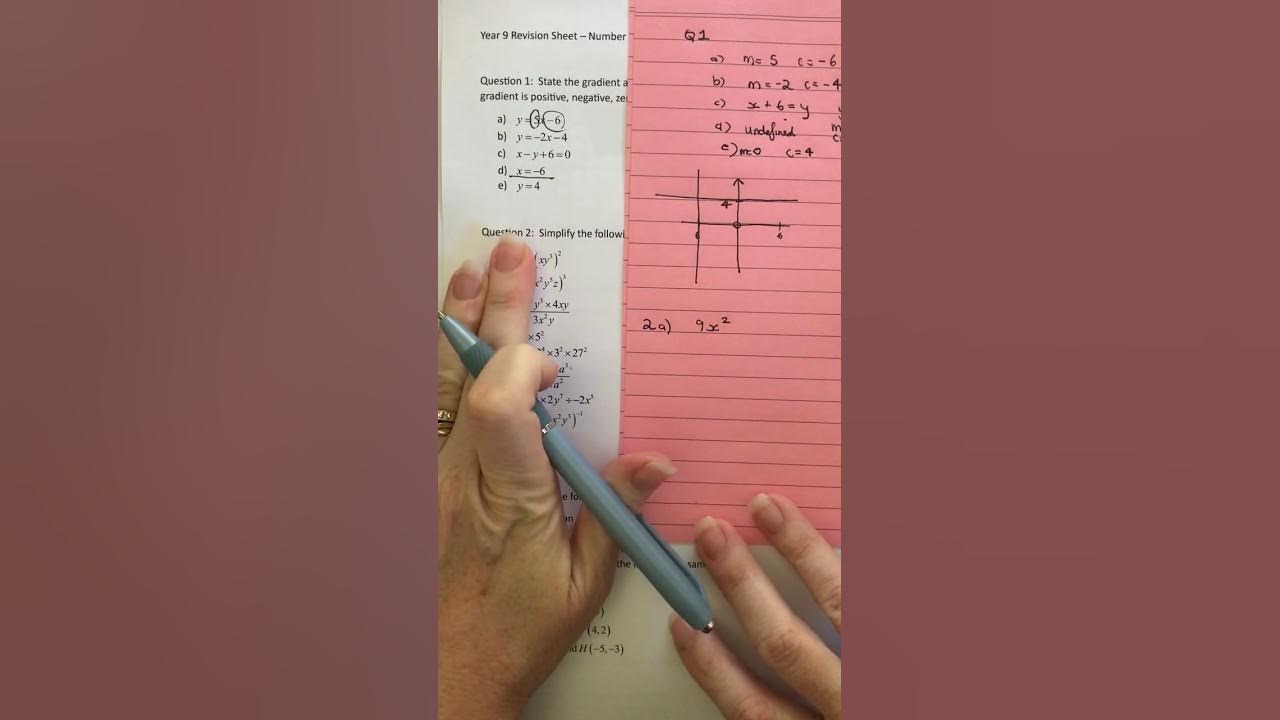 Year 9 Revision Sheet – Number
Question 1: State the gradient a
gradient is positive, negative, ze
a) y=5x−6
b) y=−2x−4
c) x−y+6=0
d) x=−6
e) y=4
Question 2: Simplify the followi
(xy³)²
x²y⁵z)³
y³×4xy
3x²y
×5²
×3²×27²
a³
a²
×2y⁷÷−2x⁵
x²y³)⁻¹
e fo
an
the sam
)
(4,2)
nd H(−5,−3)
Q1
a) m=5 c=-6
b) m=-2 c=-4
c) x+6=y
d) undefined m
c=
e) m=0 c=4
4
6 6
2a) 9x²